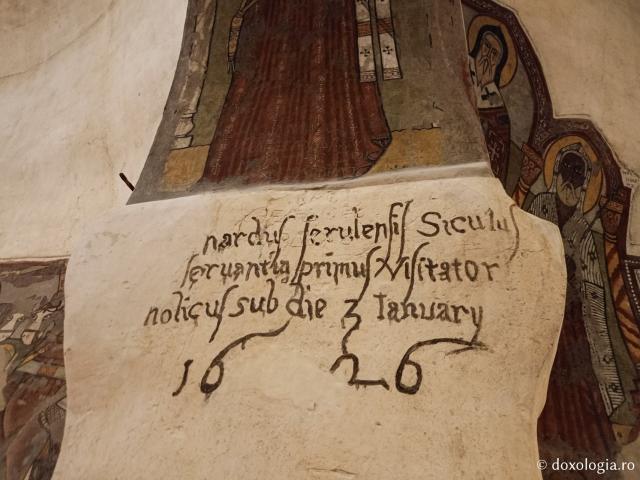 nardus ferulensis Siculus
seruantia primus visitator
nolicus sub die 3 Ianuary
16 26
© doxologia.ro